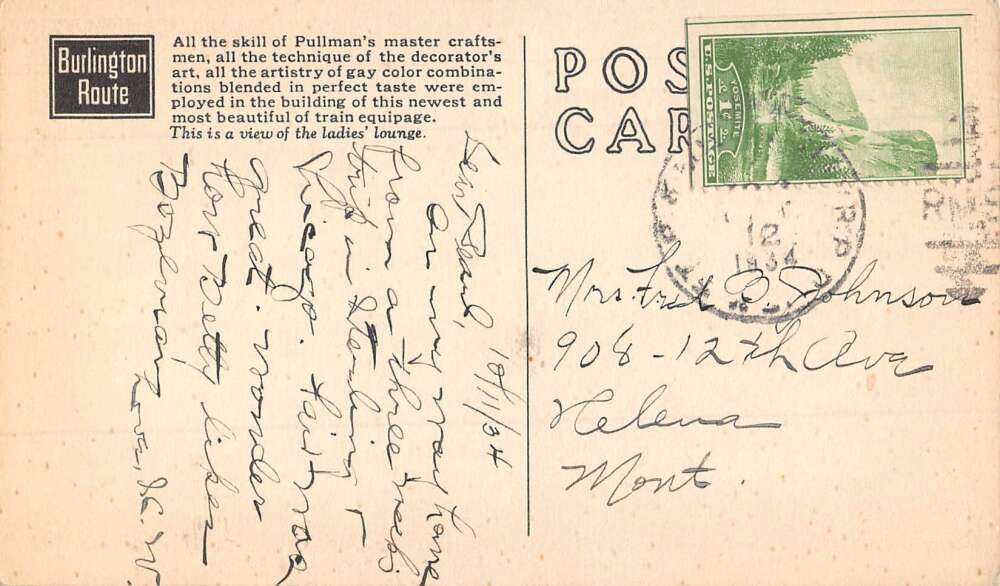 Burlington
Route
All the skill of Pullman's master crafts-
men, all the technique of the decorator's
art, all the artistry of gay color combina-
tions blended in perfect taste were em-
ployed in the building of this newest and
most beautiful of train equipage.
This is a view of the ladies' lounge.
10/11/34
Dear
On my way home
from a three weeks
trip in Sterling &
Chicago. Fair was
great. Wonder
how Betty likes
Bozeman,
Love,
POS
CAR
U.S. POSTAGE
YOSEMITE
1¢
12
1934
R.P.O.
Mrs. Fred B. Johnson
908 - 12th Ave
Helena
Mont.